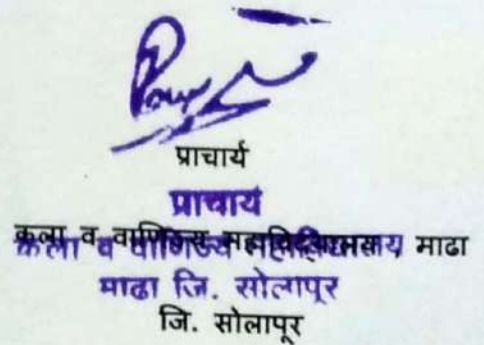 प्राचार्य
प्राचार्य
कला व वाणिज्य महाविद्यालय, माढा
कला व वाणिज्य महाविद्यालय
माढा जि. सोलापूर
जि. सोलापूर